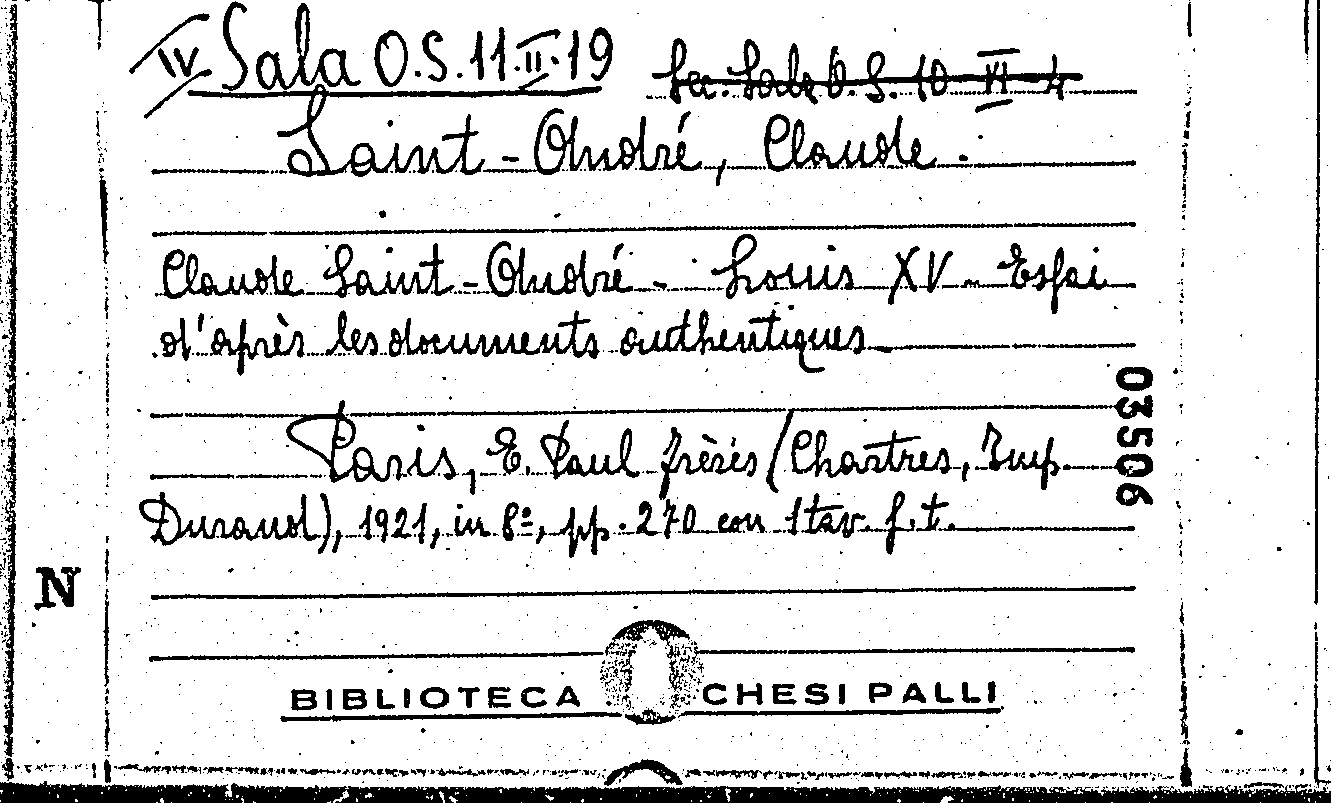 IV Sala O.S. 11.II.19 Sec. Sala O.S. 10 VI 4
Saint-André, Claude.
Claude Saint-André - Louis XV - Essai
d'après les documents authentiques -
Paris, E. Paul frères (Chartres, Imp.
Durand), 1921, in 8º, pp. 270 con 1 tav. f. t.
03506
N
BIBLIOTECA CHESI PALLI